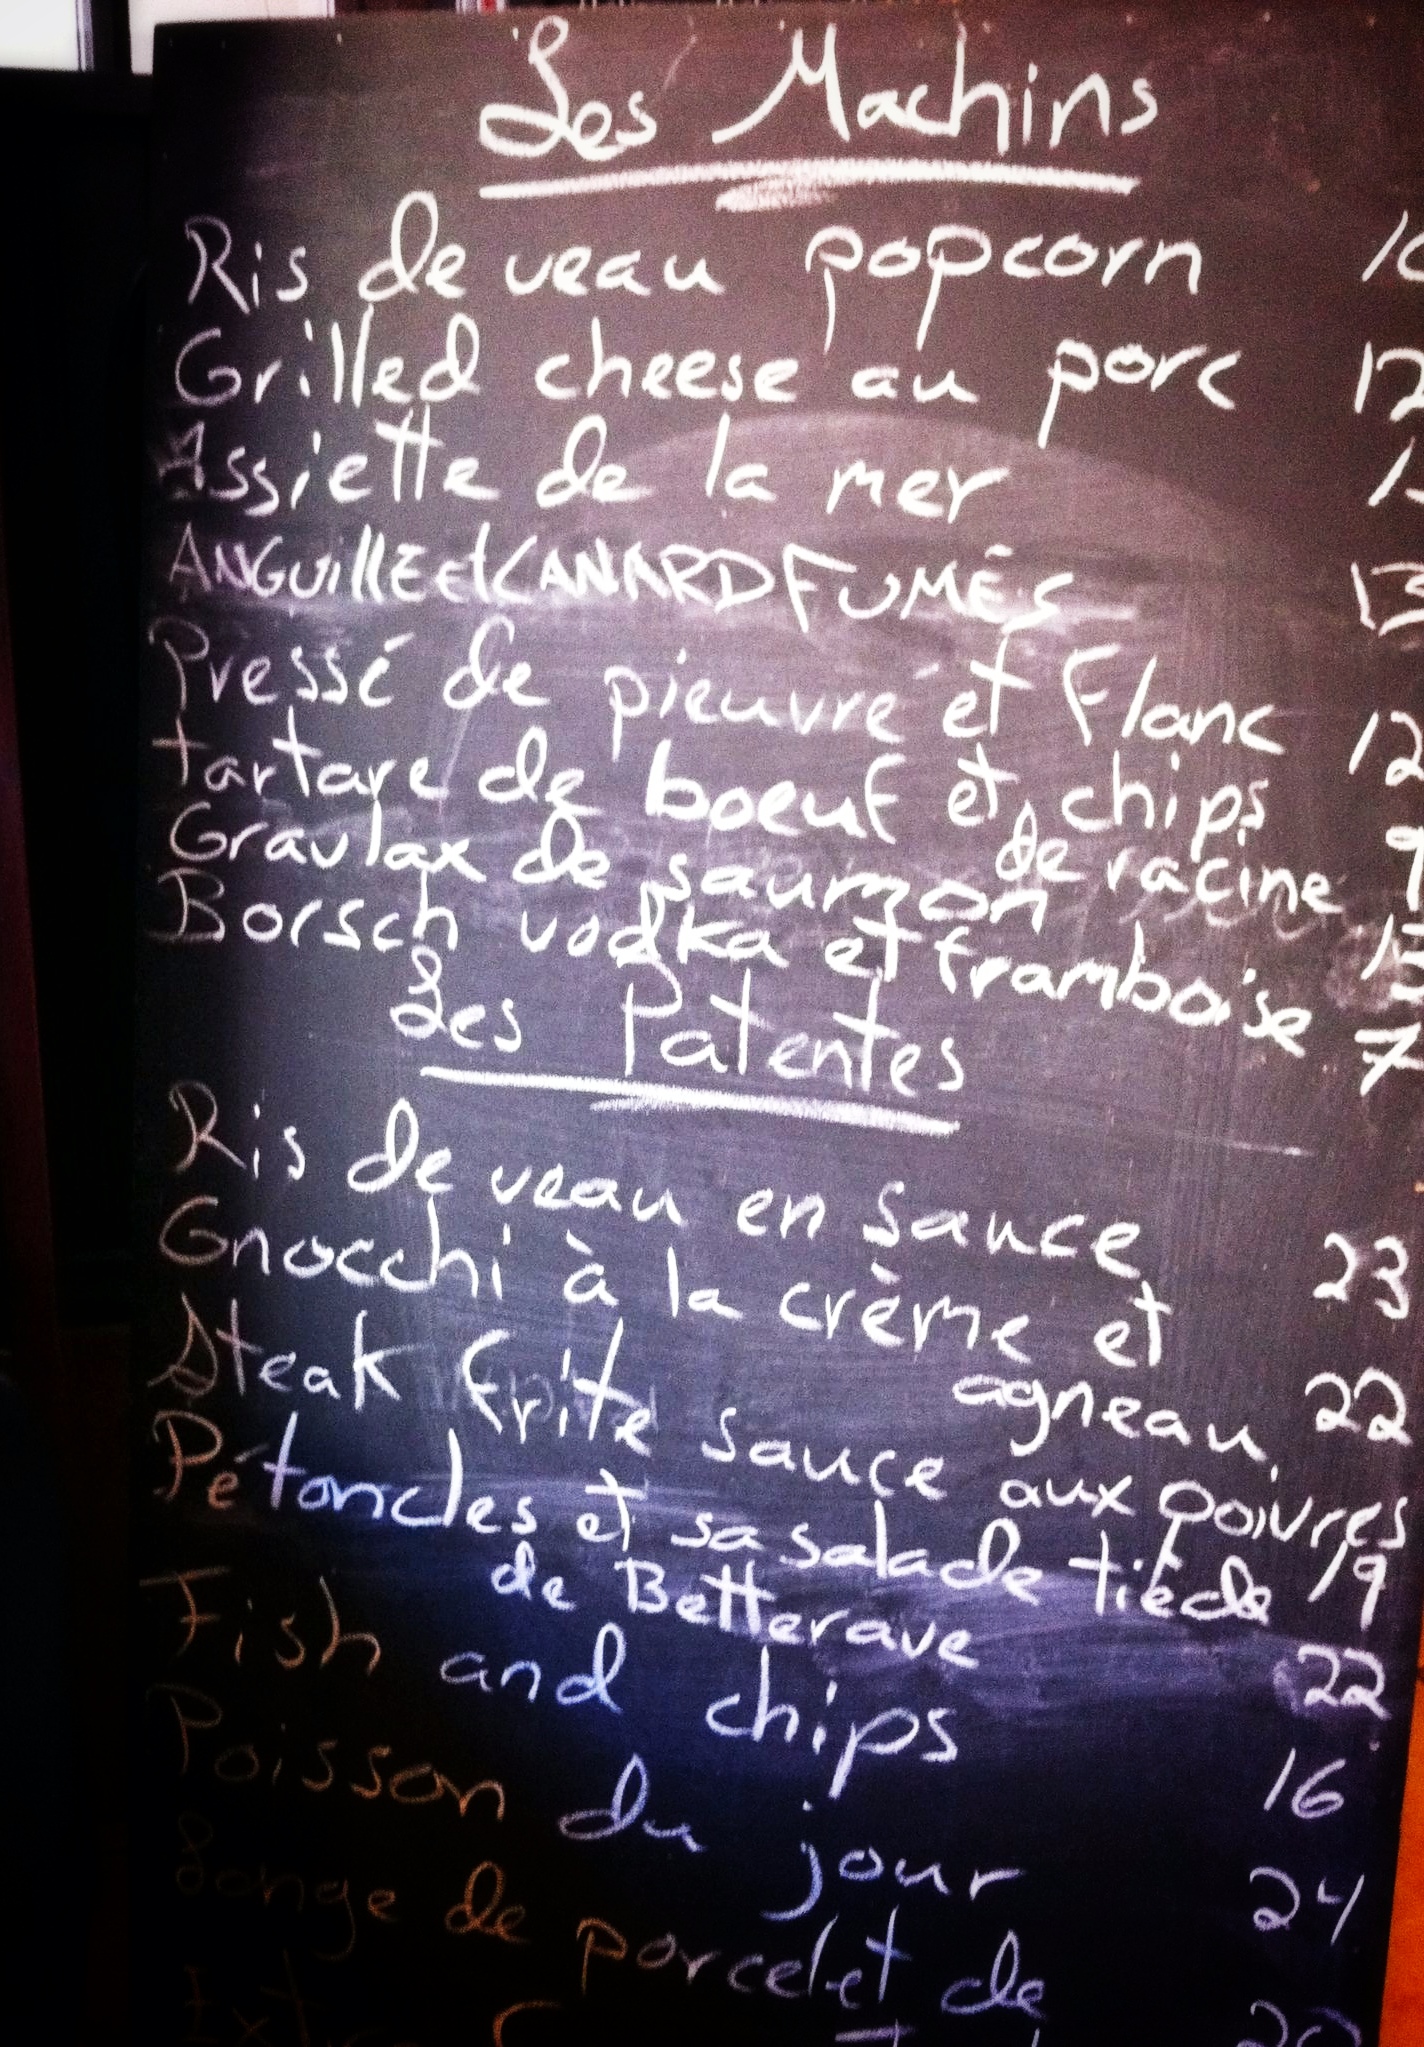 Les Machins
Ris de veau popcorn
Grilled cheese au porc 12
Assiette de la mer
ANGuillE et CANARD FUMÉS 13
Pressé de pieuvre et Flanc 12
tartare de boeuf et chips
de racine 9
Gravlax de saumon
Borsch vodka et framboise 7
Les Patentes
Ris de veau en sauce 23
Gnocchi à la crème et
agneau 22
Steak frite sauce aux poivres 19
Pétoncles et sa salade tiède
de Betterave 22
Fish and chips 16
Poisson du jour 24
Longe de porcelet de